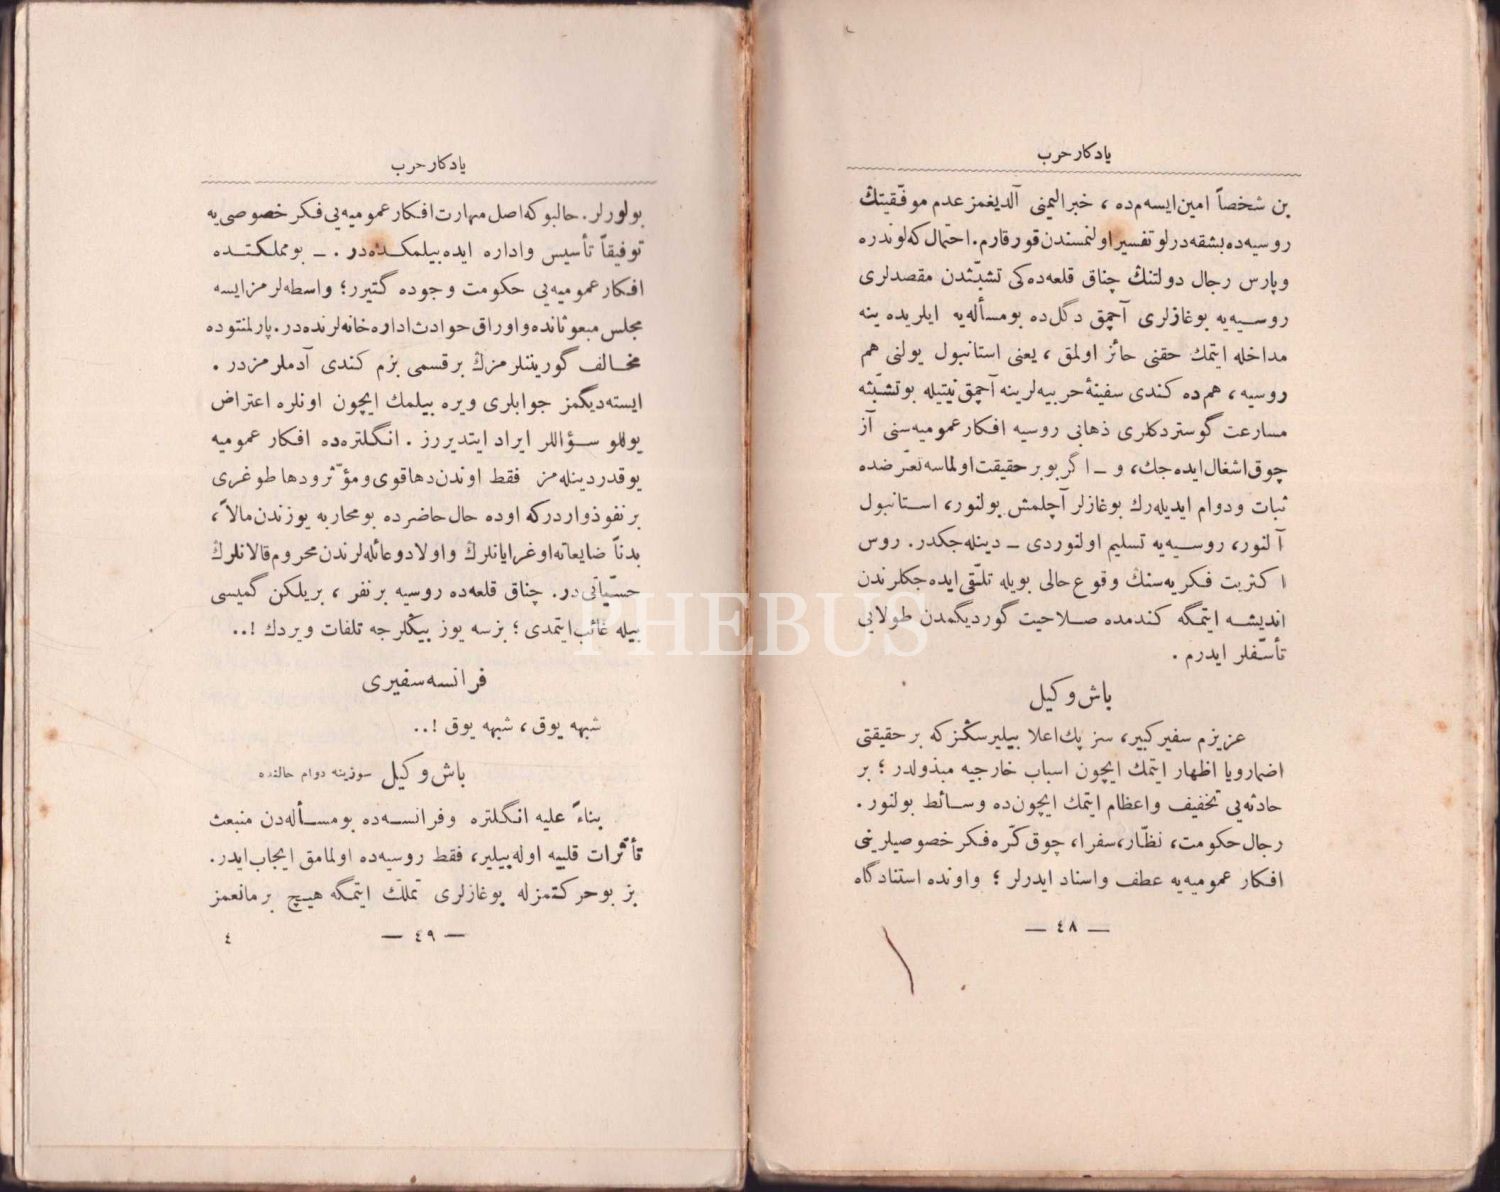 یادکار حرب
بن شخصاً امین ایسەم‌ده ، خبر الیمنی آلدیغمز عدم موفّقیتڭ
روسیه‌ده بشقه درلو تفسیر اولنمسندن قورقارم. احتمال که لوندره
وپارس رجال دولتنڭ چناق قلعه‌ده‌کی تشبّثدن مقصدلری
روسیه‌یه بوغازلری آچمق دگل‌ده بومسأله‌یه ایلریده ینه
مداخله ایتمك حقنی حائز اولمق ، یعنی استانبول یولنی هم
روسیه ، هم‌ده کندی سفینۀ حربیه‌لرینه آچمق نیتیله بوتشبّثه
مسارعت گوستردکلری ذهابی روسیه افکار عمومیه‌سنی آز
چوق اشغال ایده‌جك، و ــ اگر بو بر حقیقت اولماسه تعرّضده
ثبات ودوام ایدیله‌رك بوغازلر آچلمش بولنور، استانبول
آلنور، روسیه‌یه تسلیم اولنوردی ــ دینله‌جکدر. روس
اکثریت فکریه‌سنڭ وقوع حالی بویله تلقّی ایده‌جکلرندن
اندیشه ایتمگه کندمده صلاحیت گوردیگمدن طولایی
تأسّفلر ایدرم .
باش وکیل
عزیزم سفیر کبیر، سز پك اعلا بیلیرسڭز که بر حقیقتی
اضمار ویا اظهار ایتمك ایچون اسباب خارجیه مبذولدر ؛ بر
حادثه‌یی تخفیف واعظام ایتمك ایچون‌ده وسائط بولنور .
رجال حکومت، نظّار، سفرا، چوق کرّه فکر خصوصیلرینی
افکار عمومیه‌یه عطف واسناد ایدرلر ؛ واونده استنادگاه
— ٤٨ —
یادکار حرب
بولورلر. حالبوکه اصل مهارت افکار عمومیه‌یی فکر خصوصی‌یه
توفیقاً تأسیس واداره ایده‌بیلمکده‌در . ــ بومملکتده
افکار عمومیه‌یی حکومت وجوده گتیرر ؛ واسطه‌لرمز ایسه
مجلس مبعوثانده واوراق حوادث اداره‌خانه‌لرنده‌در. پارلمنتوده
مخالف گورینلرمزڭ بر قسمی بزم کندی آدملرمزدر .
ایسته‌دیگمز جوابلری ویره بیلمك ایچون اونلره اعتراض
یوللو سؤاللر ایراد ایتدیررز . انگلتره‌ده افکار عمومیه
یوقدر دینله‌مز فقط اوندن دها قوی ومؤثّر ودها طوغری
بر نفوذ واردرکه اوده حال حاضرده بومحاربه یوزندن مالاً ،
بدناً ضایعاته اوغرایانلرڭ واولاد وعائله‌لرندن محروم قالانلرڭ
حسّیاتی‌در. چناق قلعه‌ده روسیه بر نفر ، بریلکن گمیسی
بیله غائب ایتمدی ؛ بزسه یوز بیڭلرجه تلفات ویردك !..
فرانسه سفیری
شبهه یوق ، شبهه یوق !..
باش وکیل سوزینه دوام حالنده
بناءً علیه انگلتره وفرانسه‌ده بومسأله‌دن منبعث
تأثّرات قلبیه اوله‌بیلیر، فقط روسیه‌ده اولمامق ایجاب ایدر.
بز بوحرکتمزله بوغازلری تملّك ایتمگه هیچ بر مانعمز
— ٤٩ —
٤
PHEBUS